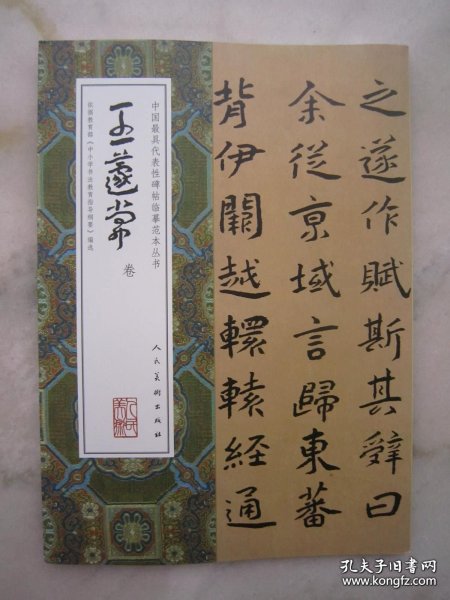 中国最具代表性碑帖临摹范本丛书
王蘧常
卷
依据教育部《中小学书法教育指导纲要》编选
人民美術出版社
之遂作賦斯其辭曰
余從京域言歸東蕃
背伊闕越轘轅經通
孔夫子旧书网
www.kongfz.com